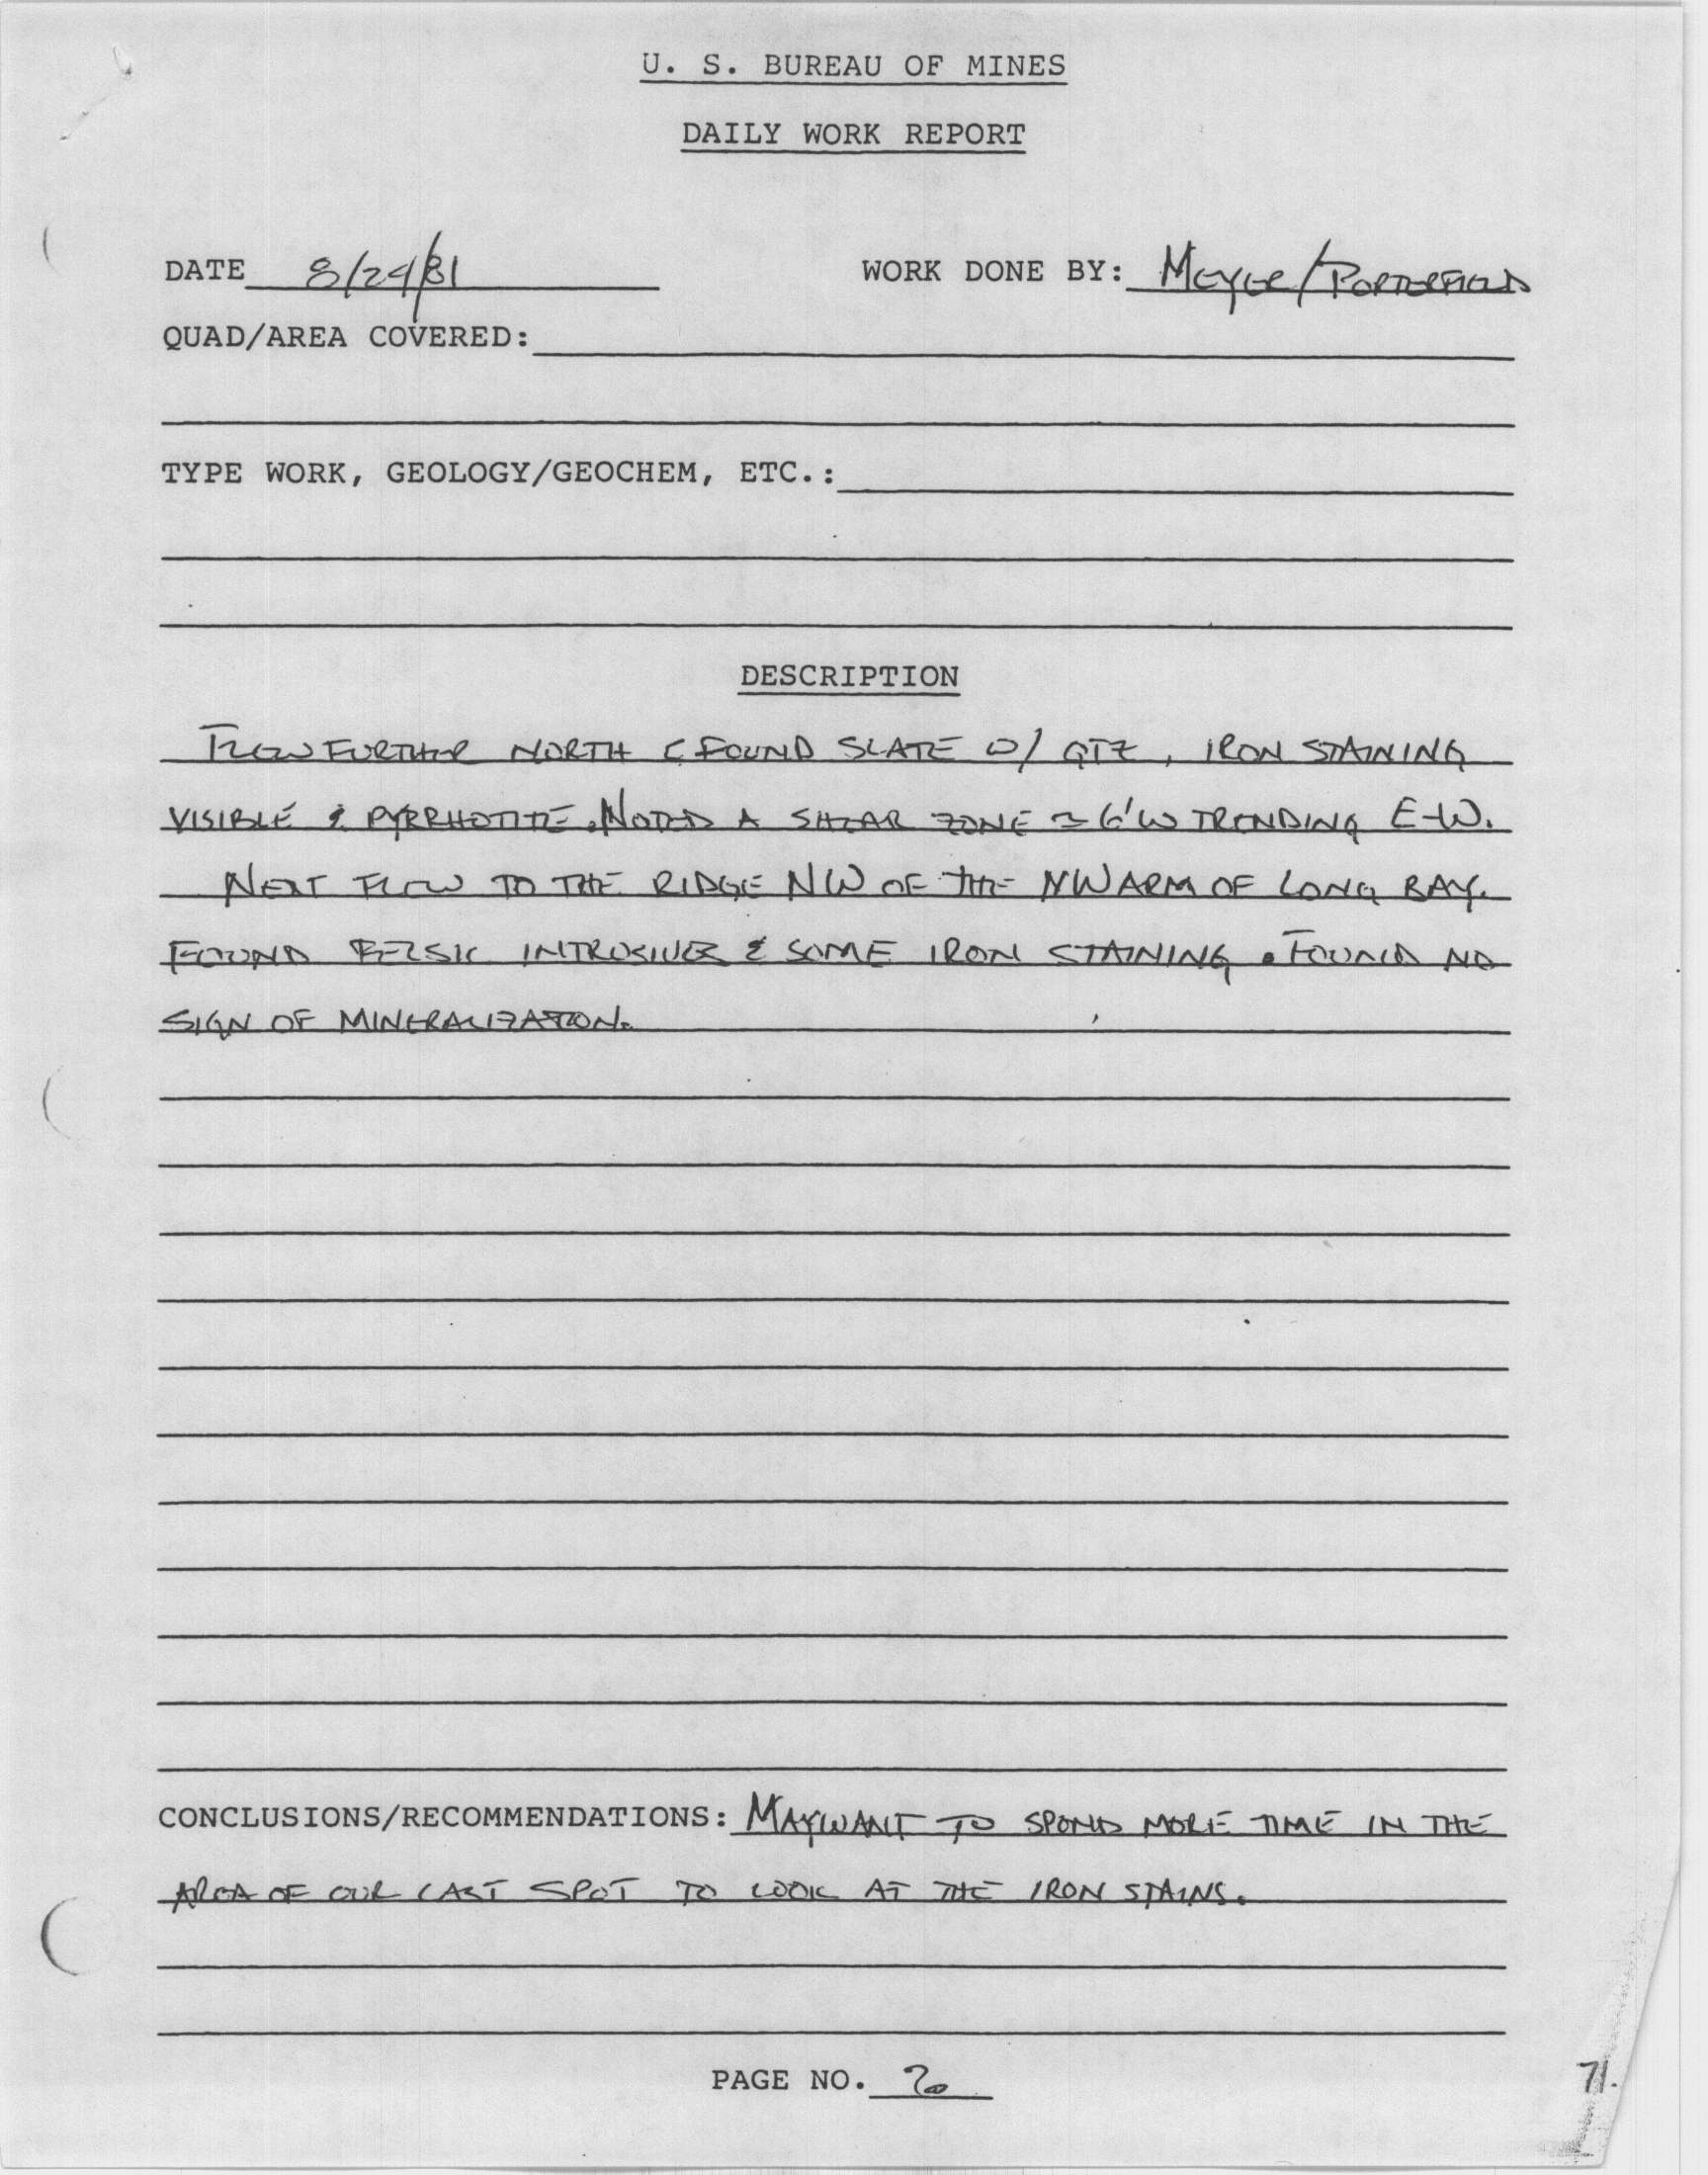 U. S. BUREAU OF MINES
DAILY WORK REPORT
DATE 8/24/81 WORK DONE BY: MEYER/PORTERFIELD
QUAD/AREA COVERED:
TYPE WORK, GEOLOGY/GEOCHEM, ETC.:
DESCRIPTION
FLEW FURTHER NORTH & FOUND SLATE W/ QTZ, IRON STAINING
VISIBLE & PYRRHOTITE. NOTED A SHEAR ZONE ≈ 6'W TRENDING E-W.
NEXT FLEW TO THE RIDGE NW OF THE NW ARM OF LONG BAY.
FOUND FELSIC INTRUSIVES & SOME IRON STAINING. FOUND NO
SIGN OF MINERALIZATION.
CONCLUSIONS/RECOMMENDATIONS: MAY WANT TO SPEND MORE TIME IN THE
AREA OF OUR LAST SPOT TO LOOK AT THE IRON STAINS.
PAGE NO. 2
71.